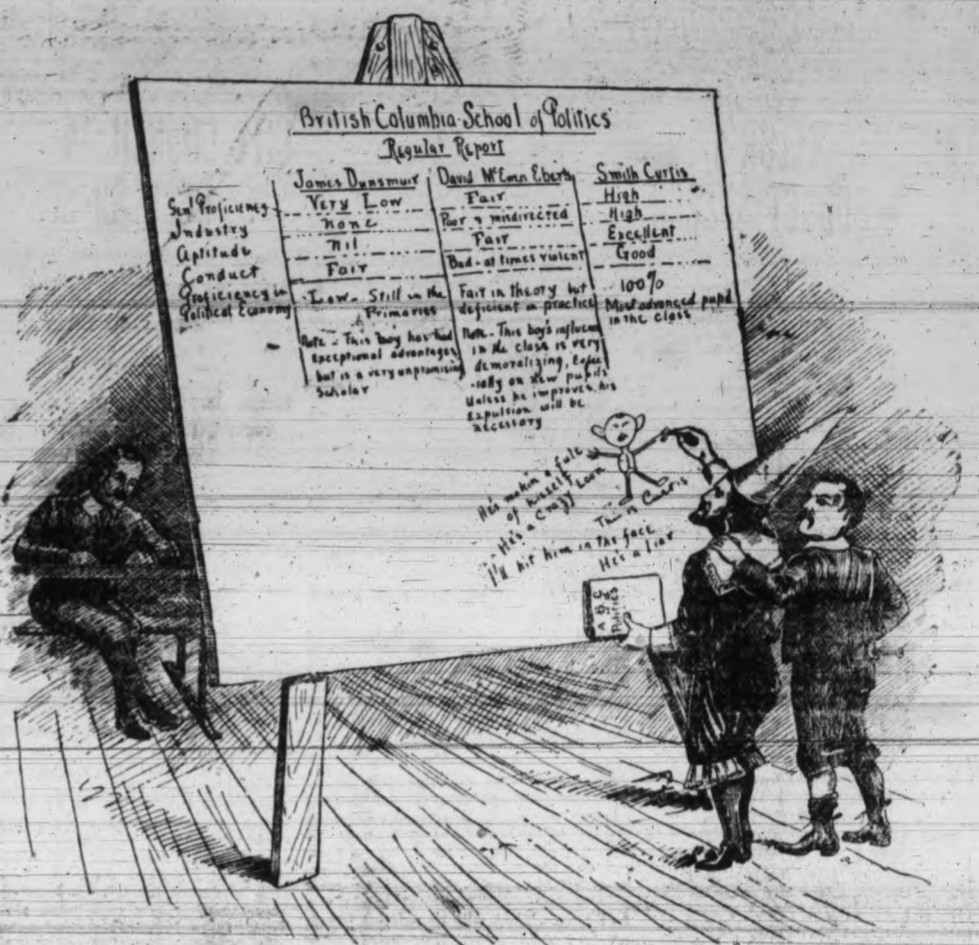 British Columbia School of Politics
Regular Report
James Dunsmuir David McEwn Eberts Smith Curtis
Genl Proficiency Very Low Fair High
Industry none Poor & misdirected High
Aptitude nil Fair Excellent
Conduct Fair Bad - at times violent Good
Proficiency in Political Economy
Low - Still in the Primaries
Fair in theory but deficient in practice
100%
Most advanced pupil in the class
Note - This boy has had
exceptional advantages
but is a very unpromising
Scholar
Note - This boy's influence
in the class is very
demoralizing, Espec
-ially on new pupils
Unless he improves his
Expulsion will be
necessary
He's makin a fule
of hisself
He's a Crazy Loon
This is Curtis
I'll hit him in the face
He's a liar
A B C
Politics